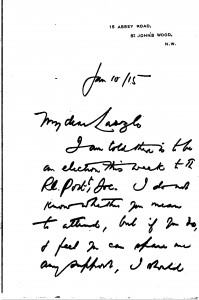 15 ABBEY ROAD,
ST JOHN'S WOOD,
N.W.
Jan 10/15
My dear Laszlo
I am told there is to be
an election this week to the
Rl. Port. Soc. I do not
know whether you mean
to attend, but if you do,
& feel you can spare me
any support, I should